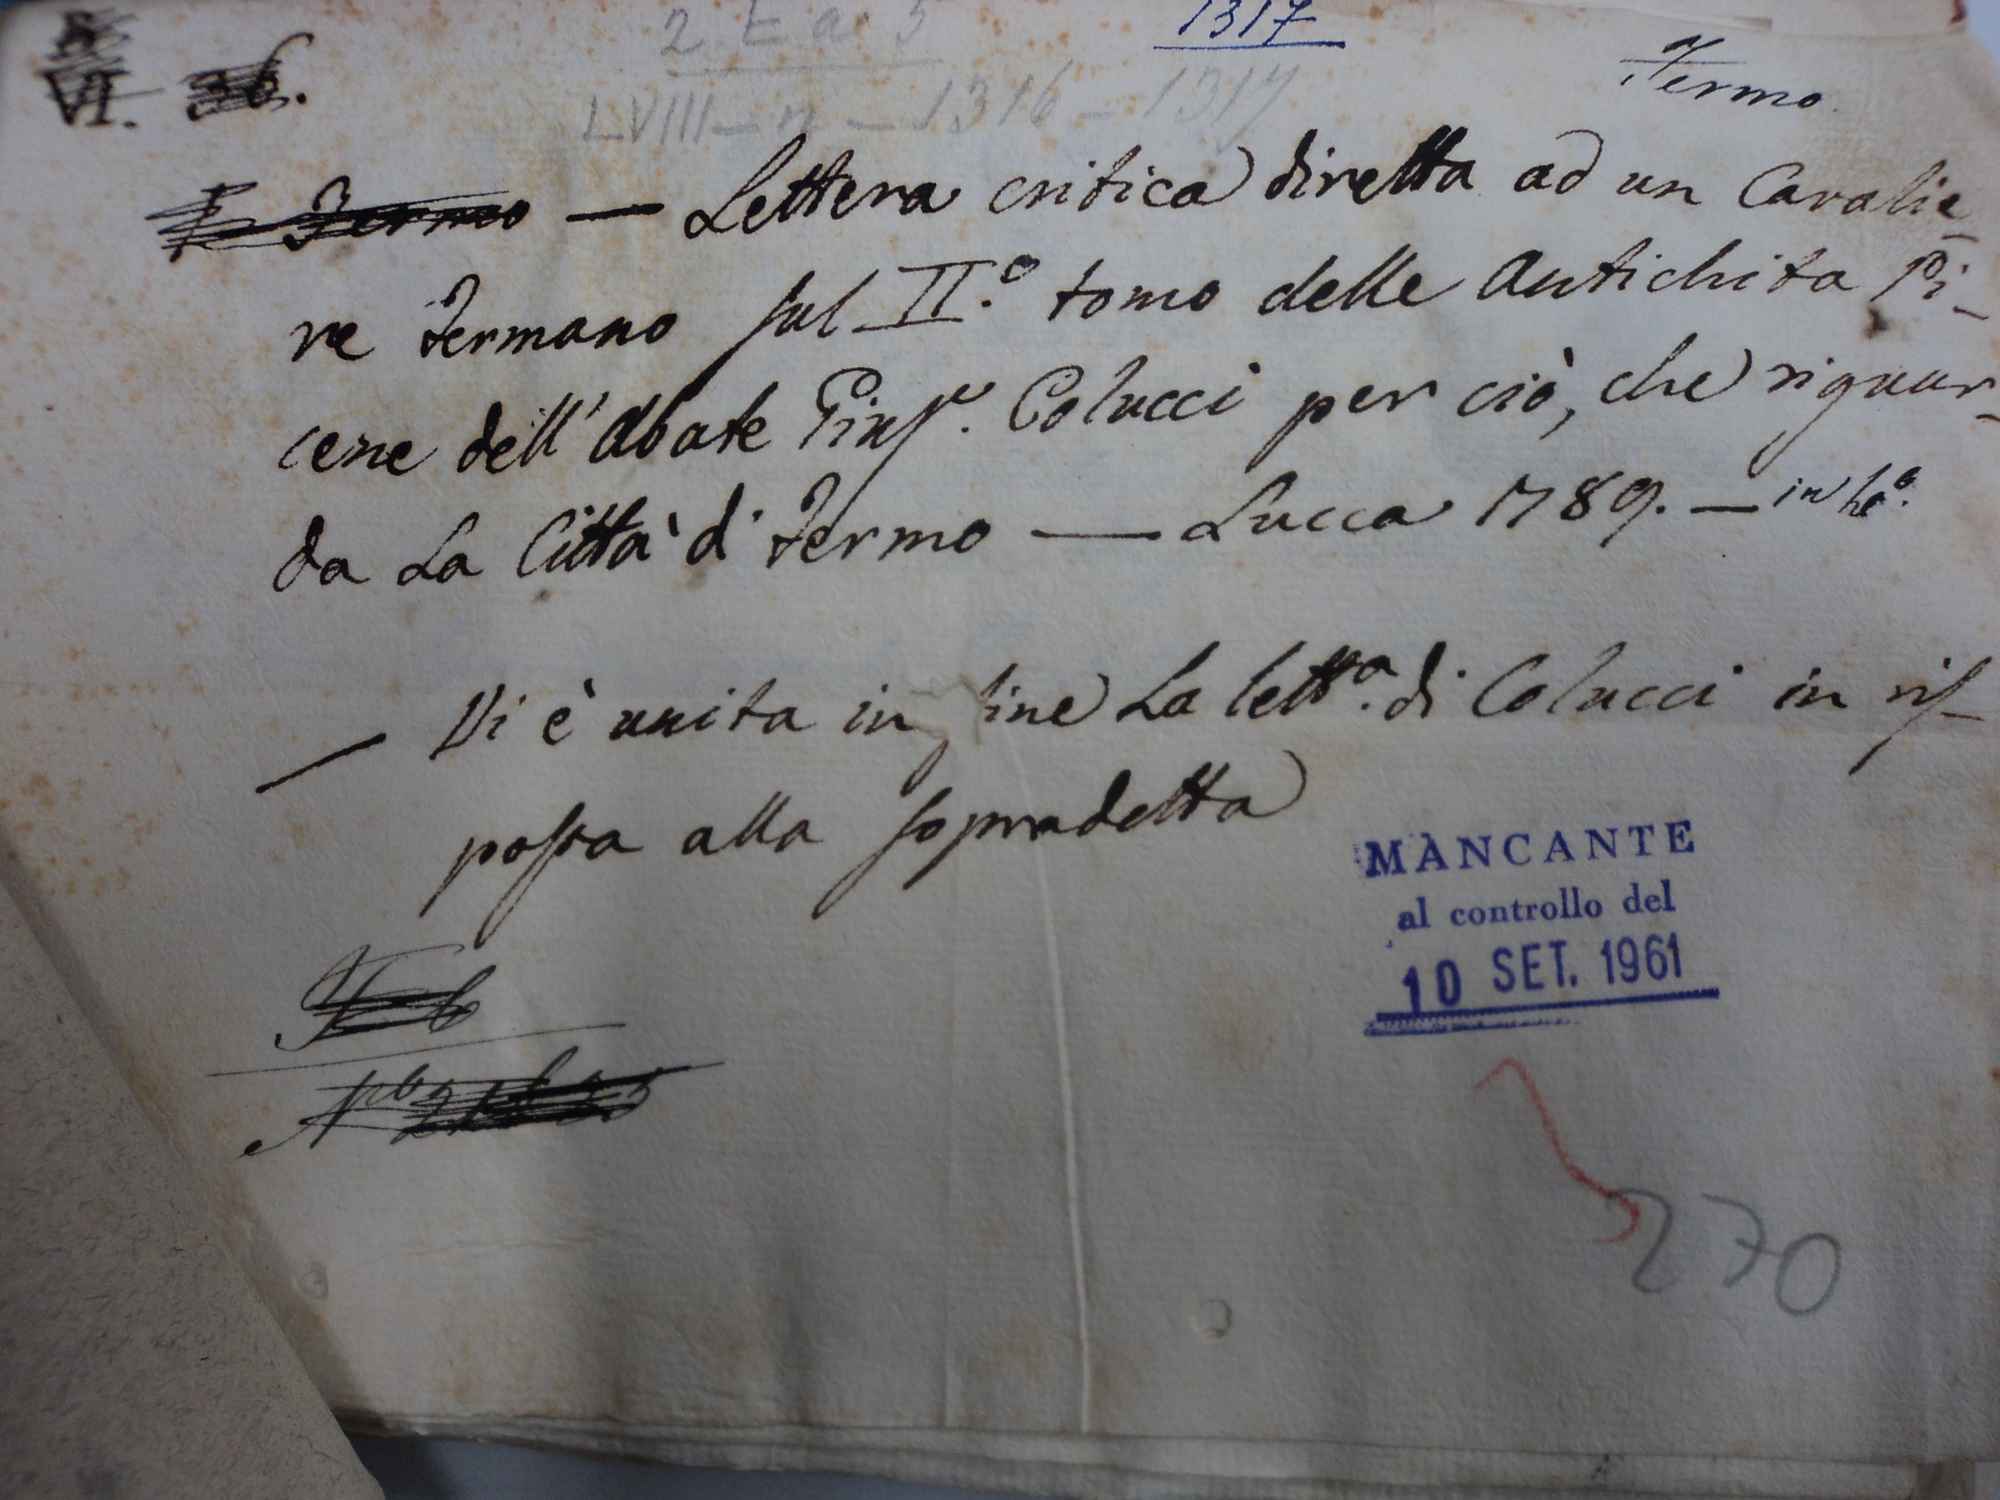 2 E a 5
1317
VI. 36.
LVIII - n - 1316 - 1317
Fermo
Fermo — Lettera critica diretta ad un Cavalie-
re Fermano sul II.º tomo delle Antichita Pi-
cene dell'Abate Giuſ.e Colucci per ciò, che riguar-
da La Città di Fermo — Lucca 1789. — in
— Vi è unita in fine La lett.a di Colucci in riſ-
poſta alla ſopradetta
MANCANTE
al controllo del
10 SET. 1961
270